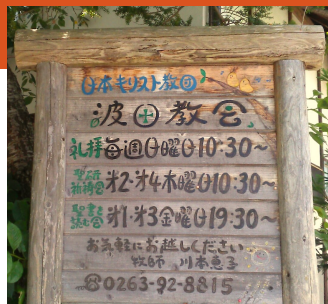 日本キリスト教団
波田教会
礼拝 毎週日曜日10:30~
聖研祈祷会 オ2・オ4木曜日10:30~
聖書を読む会 オ1・オ3金曜日19:30~
お気軽にお越しください
牧師 川本恵子
☎0263-92-8815